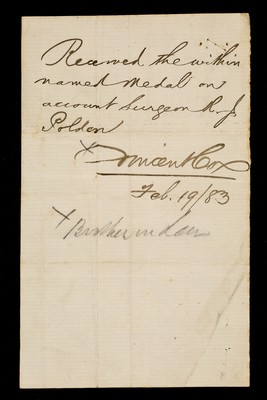 Received the within
named Medal on
account Surgeon R. J.
Polden
x Vincent Cox
Feb. 19/83
x Brother in law